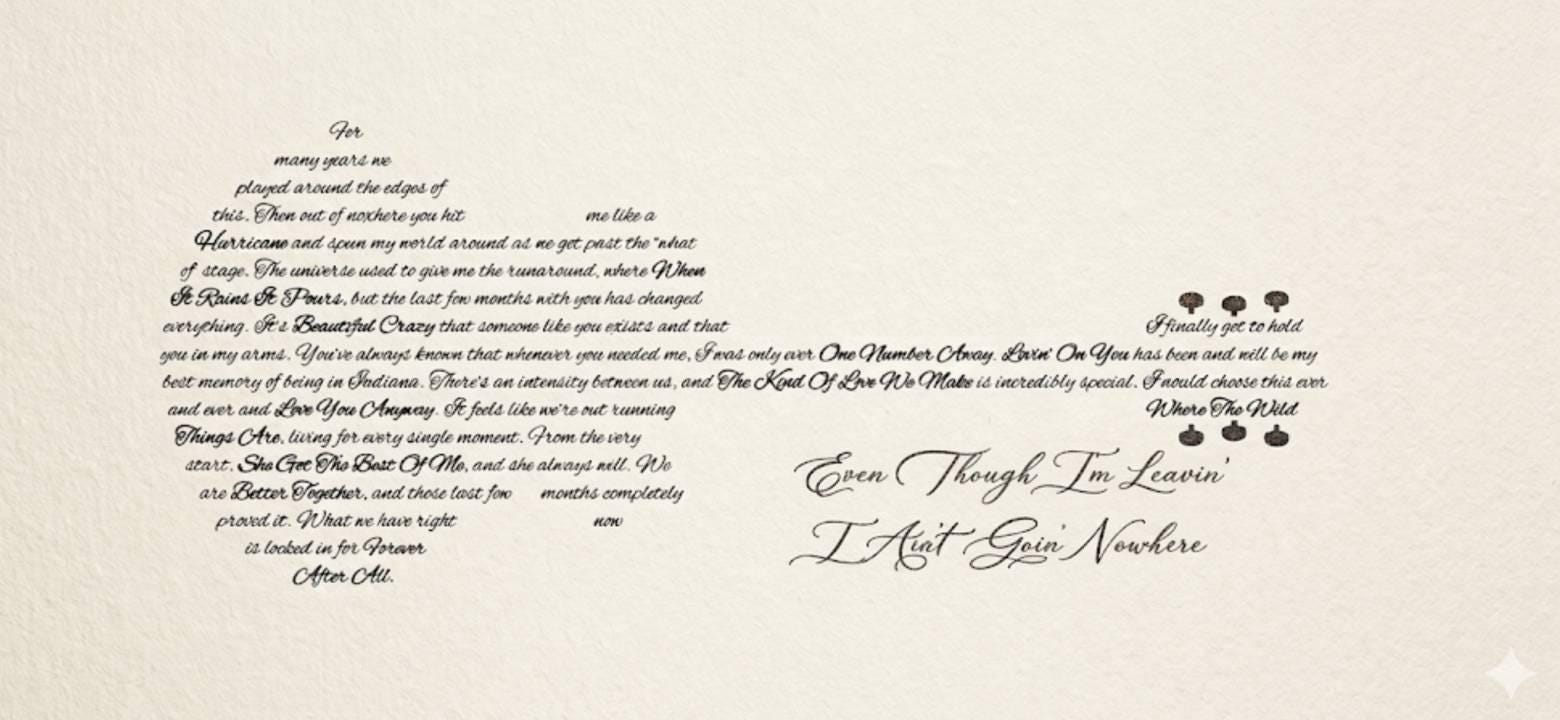 For
many years we
played around the edges of
this. Then out of noxhere you hit me like a
Hurricane and spun my world around as we get past the "what
of stage. The universe used to give me the runaround, where When
It Rains It Pours, but the last few months with you has changed
everything. It's Beautiful Crazy that someone like you exists and that I finally get to hold
you in my arms. You've always known that whenever you needed me, I was only ever One Number Away. Lovin' On You has been and will be my
best memory of being in Indiana. There's an intensity between us, and The Kind Of Love We Make is incredibly special. I would choose this ever
and ever and Love You Anyway. It feels like we're out running Where The Wild
Things Are, living for every single moment. From the very
start. She Get The Best Of Me, and she always will. We
are Better Together, and those last few months completely
proved it. What we have right now
is locked in for Forever
After All.
Even Though I'm Leavin'
I Ain't Goin' Nowhere